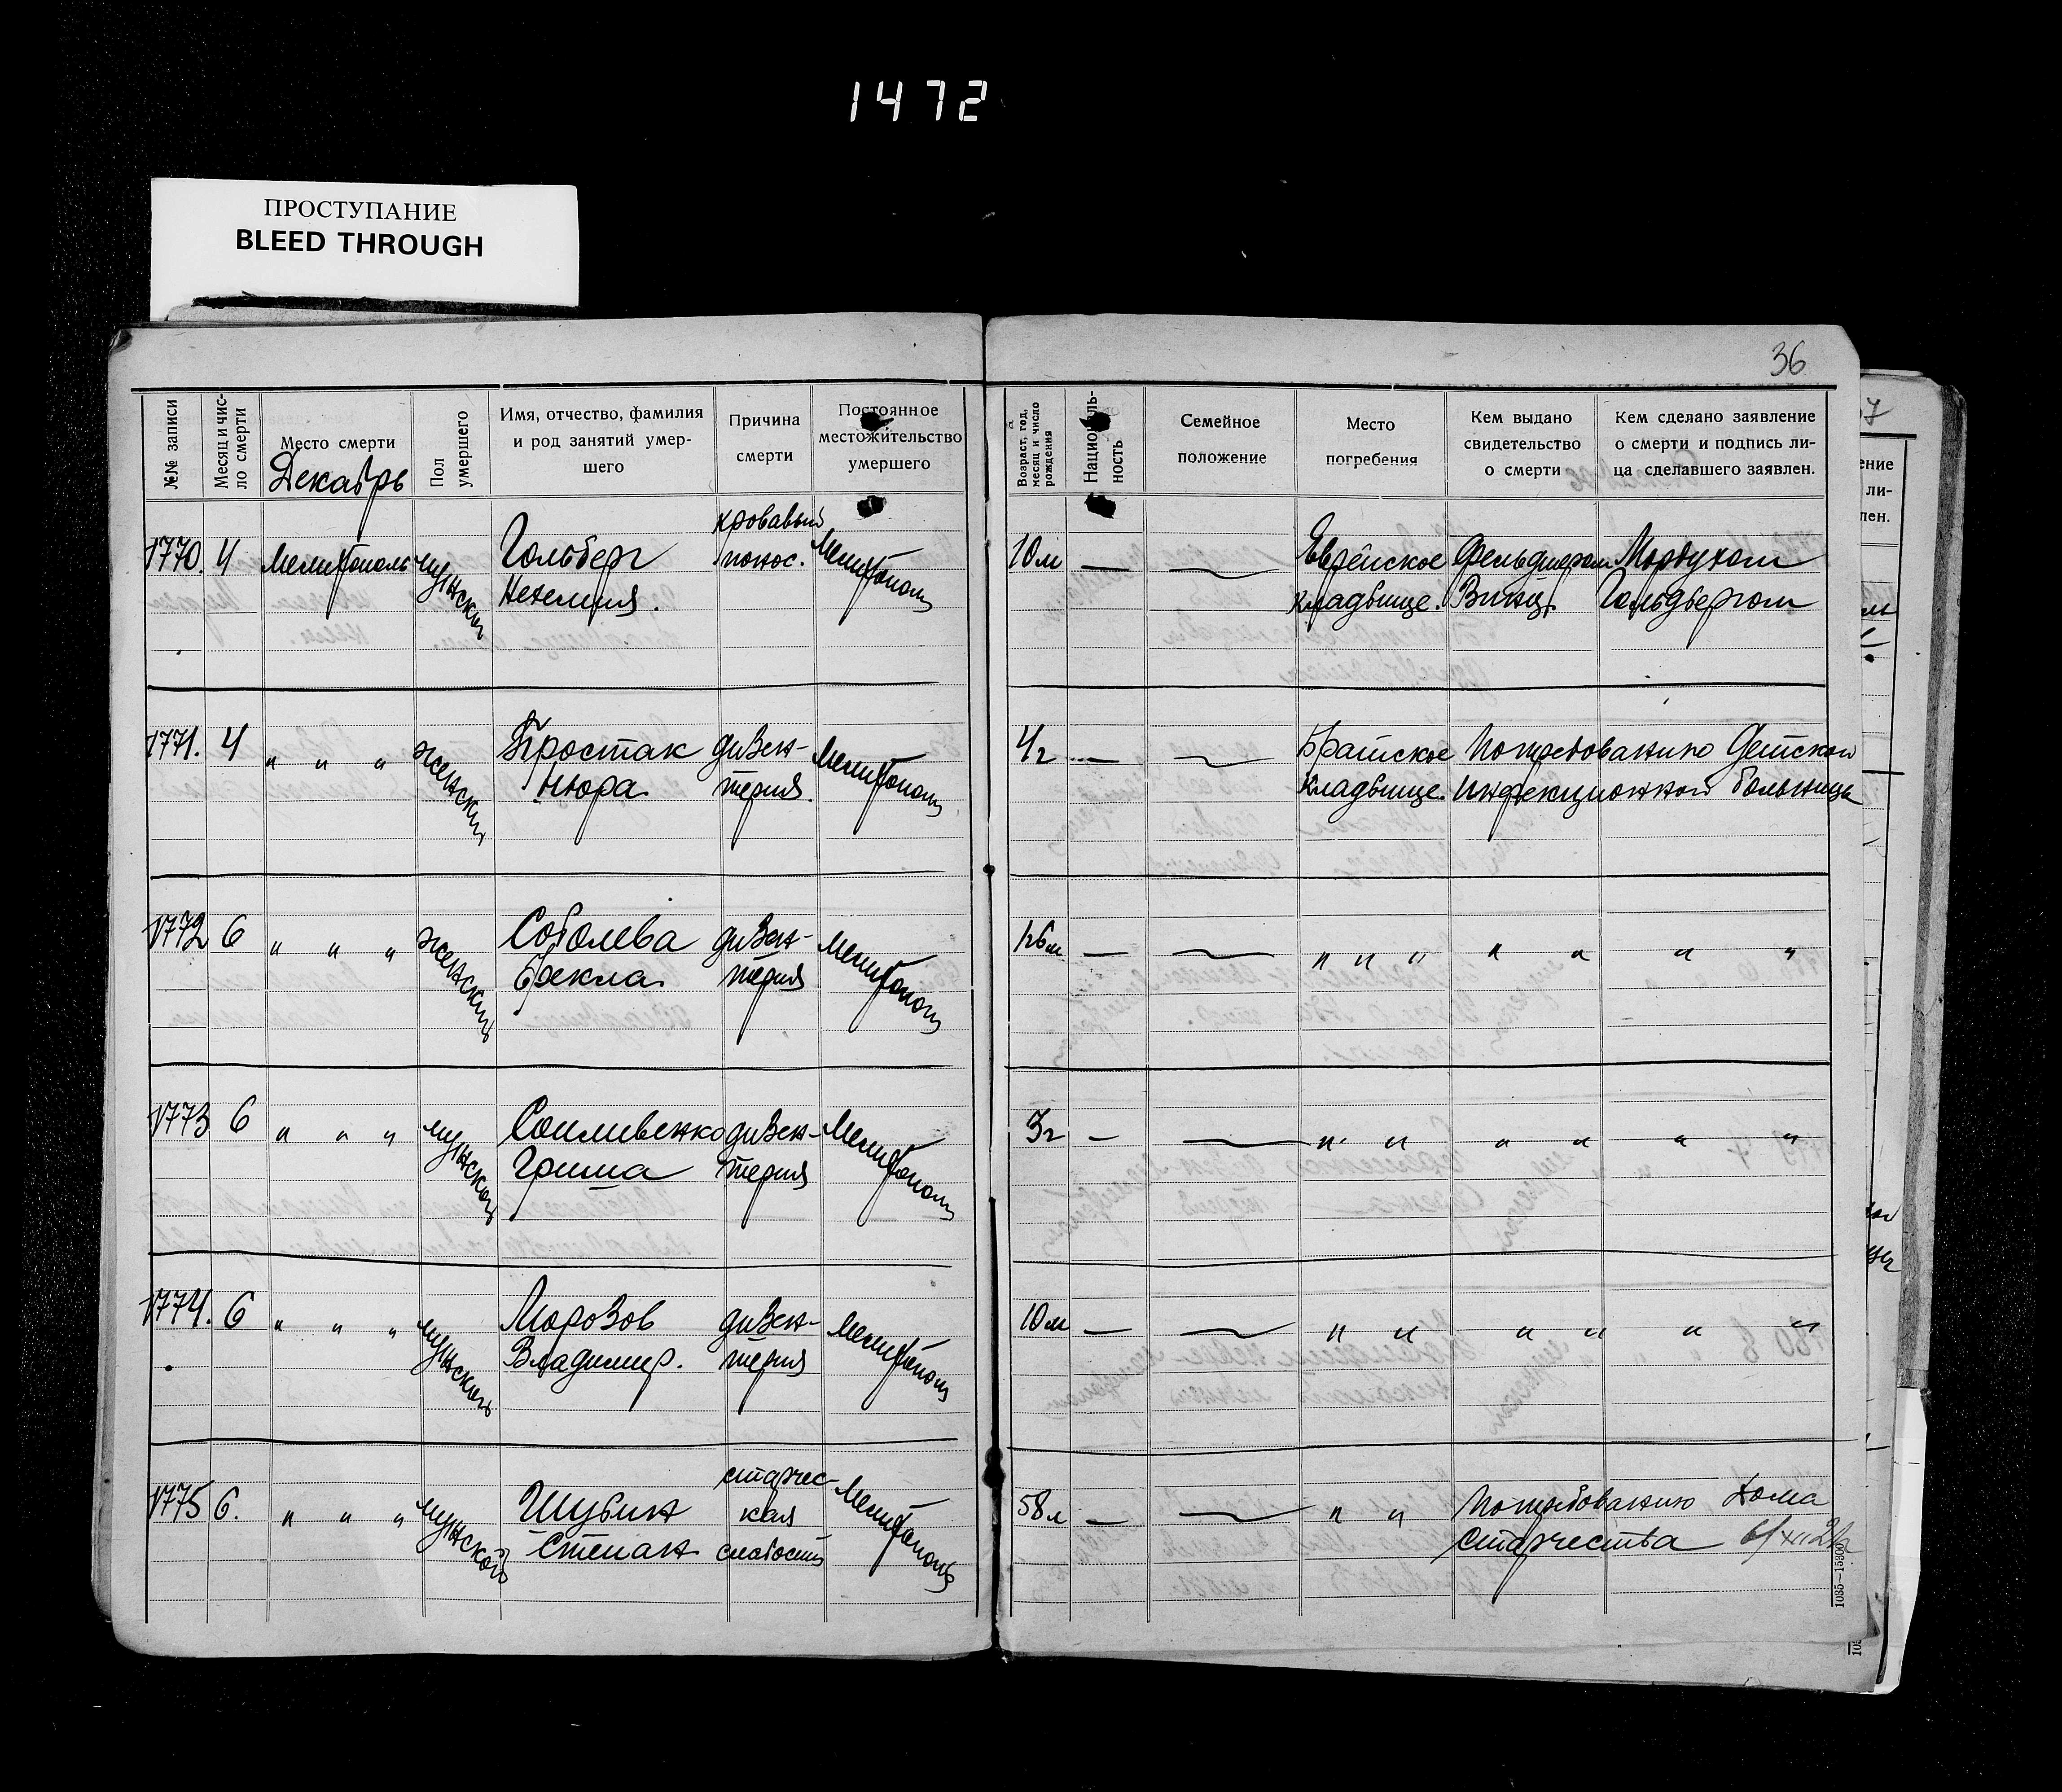 1472
ПРОСТУПАНИЕ
BLEED THROUGH
36
№№ записи
Месяц и чис-
ло смерти
Место смерти
Декабрь
Пол
умершего
Имя, отчество, фамилия
и род занятий умер-
шего
Причина
смерти
Постоянное
местожительство
умершего
Возраст, год,
месяц и число
рождения
Националь-
ность
Семейное
положение
Место
погребения
Кем выдано
свидетельство
о смерти
Кем сделано заявление
о смерти и подпись ли-
ца сделавшего заявлен.
1770. 4 Мелитополь мужской Гольберг кровавый понос. Мелитополь 10 м — — Еврейское Фельдшером Мордухом
Нехемия. кладбище. Гольдбергом
1771. 4 " " " женский Простак дизен- Мелитополь 4 г — — Братское По требованию Детской
Нюра. терия. кладбище. инфекционной больницы
1772 6 " " " женский Соболева дизен- Мелитополь 1 г 6 м — — " " " " " " "
Фекла. терия
1773 6 " " " мужской Сопливенко дизен- Мелитополь 3 г — — " " " " " "
Гриша терия
1774. 6 " " " мужской Морозов дизен- Мелитополь 10 м — — " " " " " "
Владимир. терия
1775 6. " " " мужской Шубин старчес- Мелитополь 58 л — — " " По требованию Дома
Степан кая старчества 6/XII 21 г
слабость
1035—15300